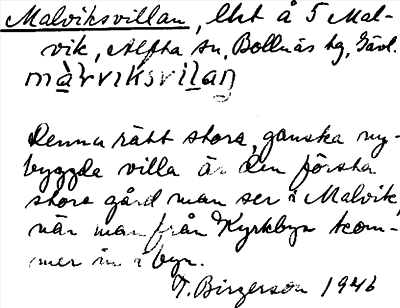 Malviksvillan, lht å 5 Mal-
vik, Alfta sn, Bollnäs tg, Gävl.
màrviksvilaŋ
Denna rätt stora, ganska ny-
byggda villa är den första
stora gård man ser i Malvik,
när man från Kyrkbyn kom-
mer in i byn.
T. Birgerson 1946